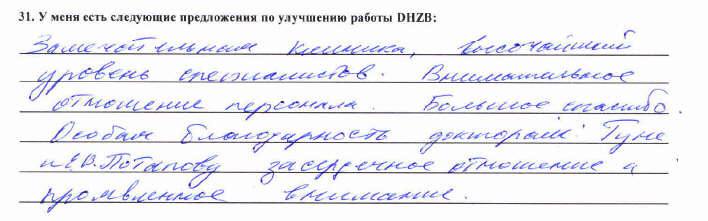 31. У меня есть следующие предложения по улучшению работы DHZB:
Замечательная клиника, высочайший
уровень специалистов. Внимательное
отношение персонала. Большое спасибо.
Особая благодарность докторам: Гуне
и Е.В.Потапову за сердечное отношение и
проявленное внимание.